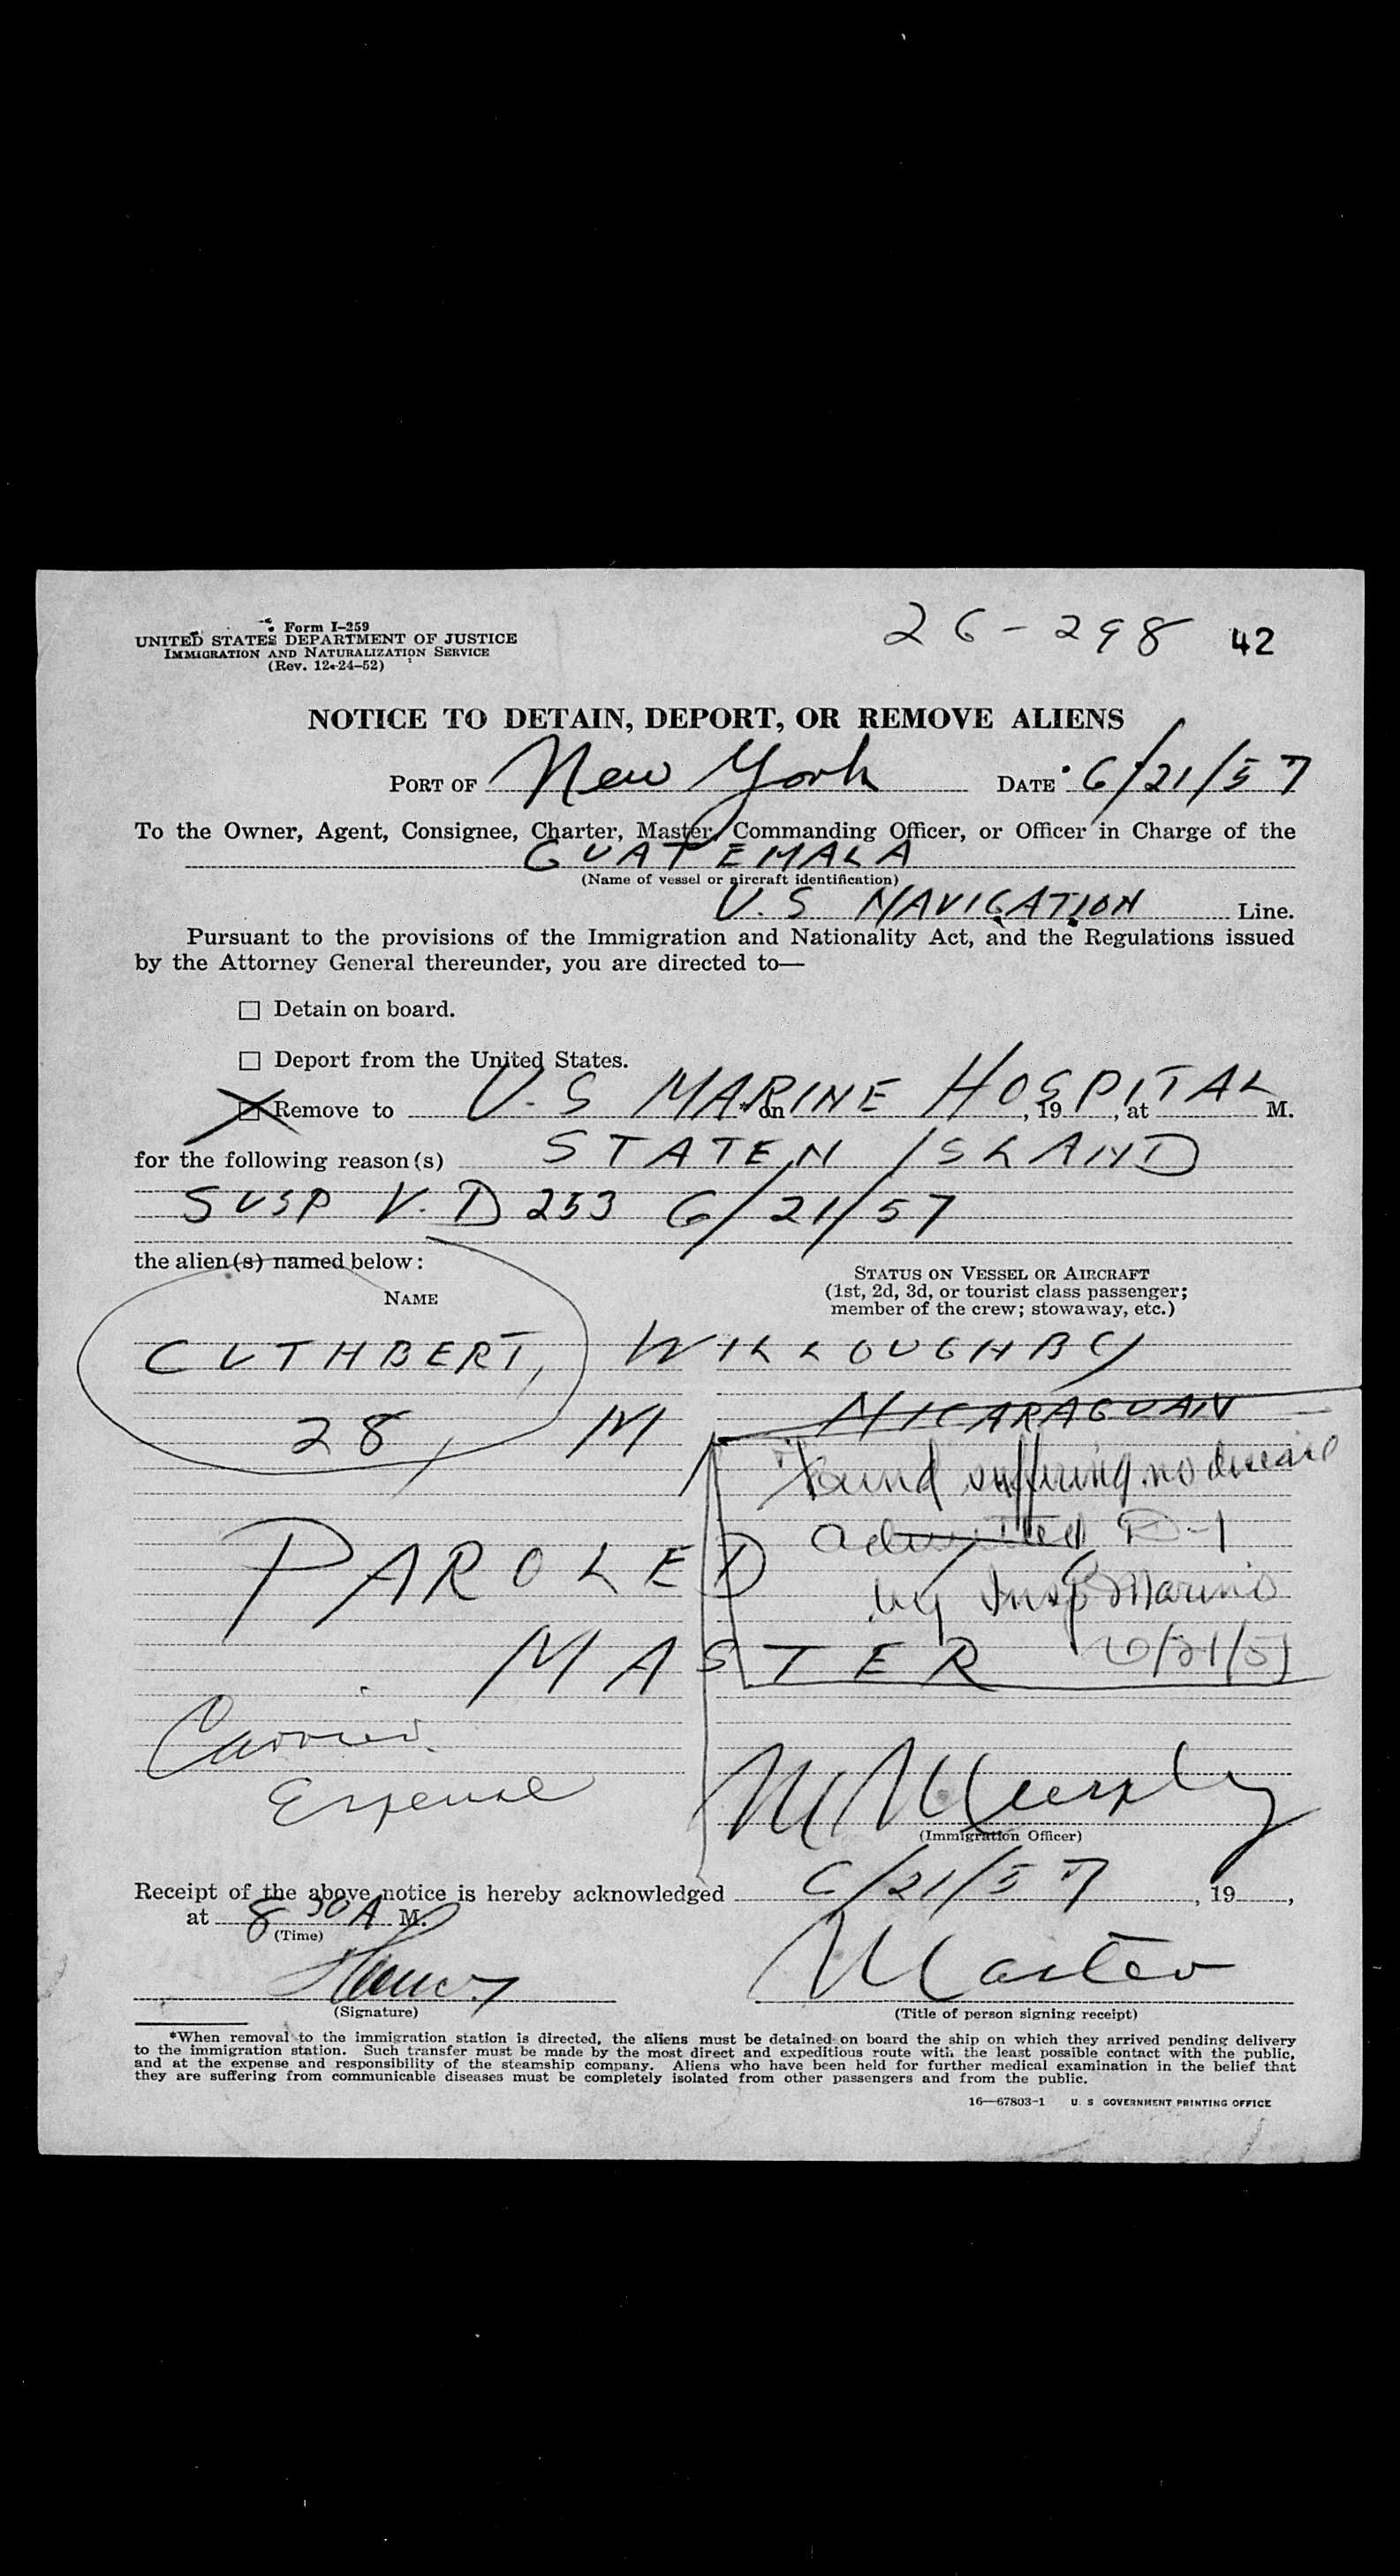 Form I-259
26-298 42
UNITED STATES DEPARTMENT OF JUSTICE
IMMIGRATION AND NATURALIZATION SERVICE
(Rev. 12-24-52)
NOTICE TO DETAIN, DEPORT, OR REMOVE ALIENS
PORT OF New York DATE 6/21/57
To the Owner, Agent, Consignee, Charter, Master, Commanding Officer, or Officer in Charge of the
GUATEMALA
(Name of vessel or aircraft identification)
U.S NAVIGATION Line.
Pursuant to the provisions of the Immigration and Nationality Act, and the Regulations issued
by the Attorney General thereunder, you are directed to—
☐ Detain on board.
☐ Deport from the United States.
☒ Remove to U.S MARINE HOSPITAL * on , 19 , at M.
for the following reason(s) STATEN ISLAND
SUSP V.D 253 6/21/57
the alien(s) named below:
NAME
STATUS ON VESSEL OR AIRCRAFT
(1st, 2d, 3d, or tourist class passenger;
member of the crew; stowaway, etc.)
CUTHBERT, WILLOUGHBY
28, M NICARAGUAN
Found suffering no disease
admitted D-1
by Insp Marino
6/21/57
PAROLED
MASTER
Carrier
Expense
M Murphy
(Immigration Officer)
Receipt of the above notice is hereby acknowledged 6/21/57 , 19 ,
at 8 30 A M.
(Time)
Master
(Signature)
(Title of person signing receipt)
*When removal to the immigration station is directed, the aliens must be detained on board the ship on which they arrived pending delivery
to the immigration station. Such transfer must be made by the most direct and expeditious route with the least possible contact with the public,
and at the expense and responsibility of the steamship company. Aliens who have been held for further medical examination in the belief that
they are suffering from communicable diseases must be completely isolated from other passengers and from the public.
16—67803-1 U. S GOVERNMENT PRINTING OFFICE